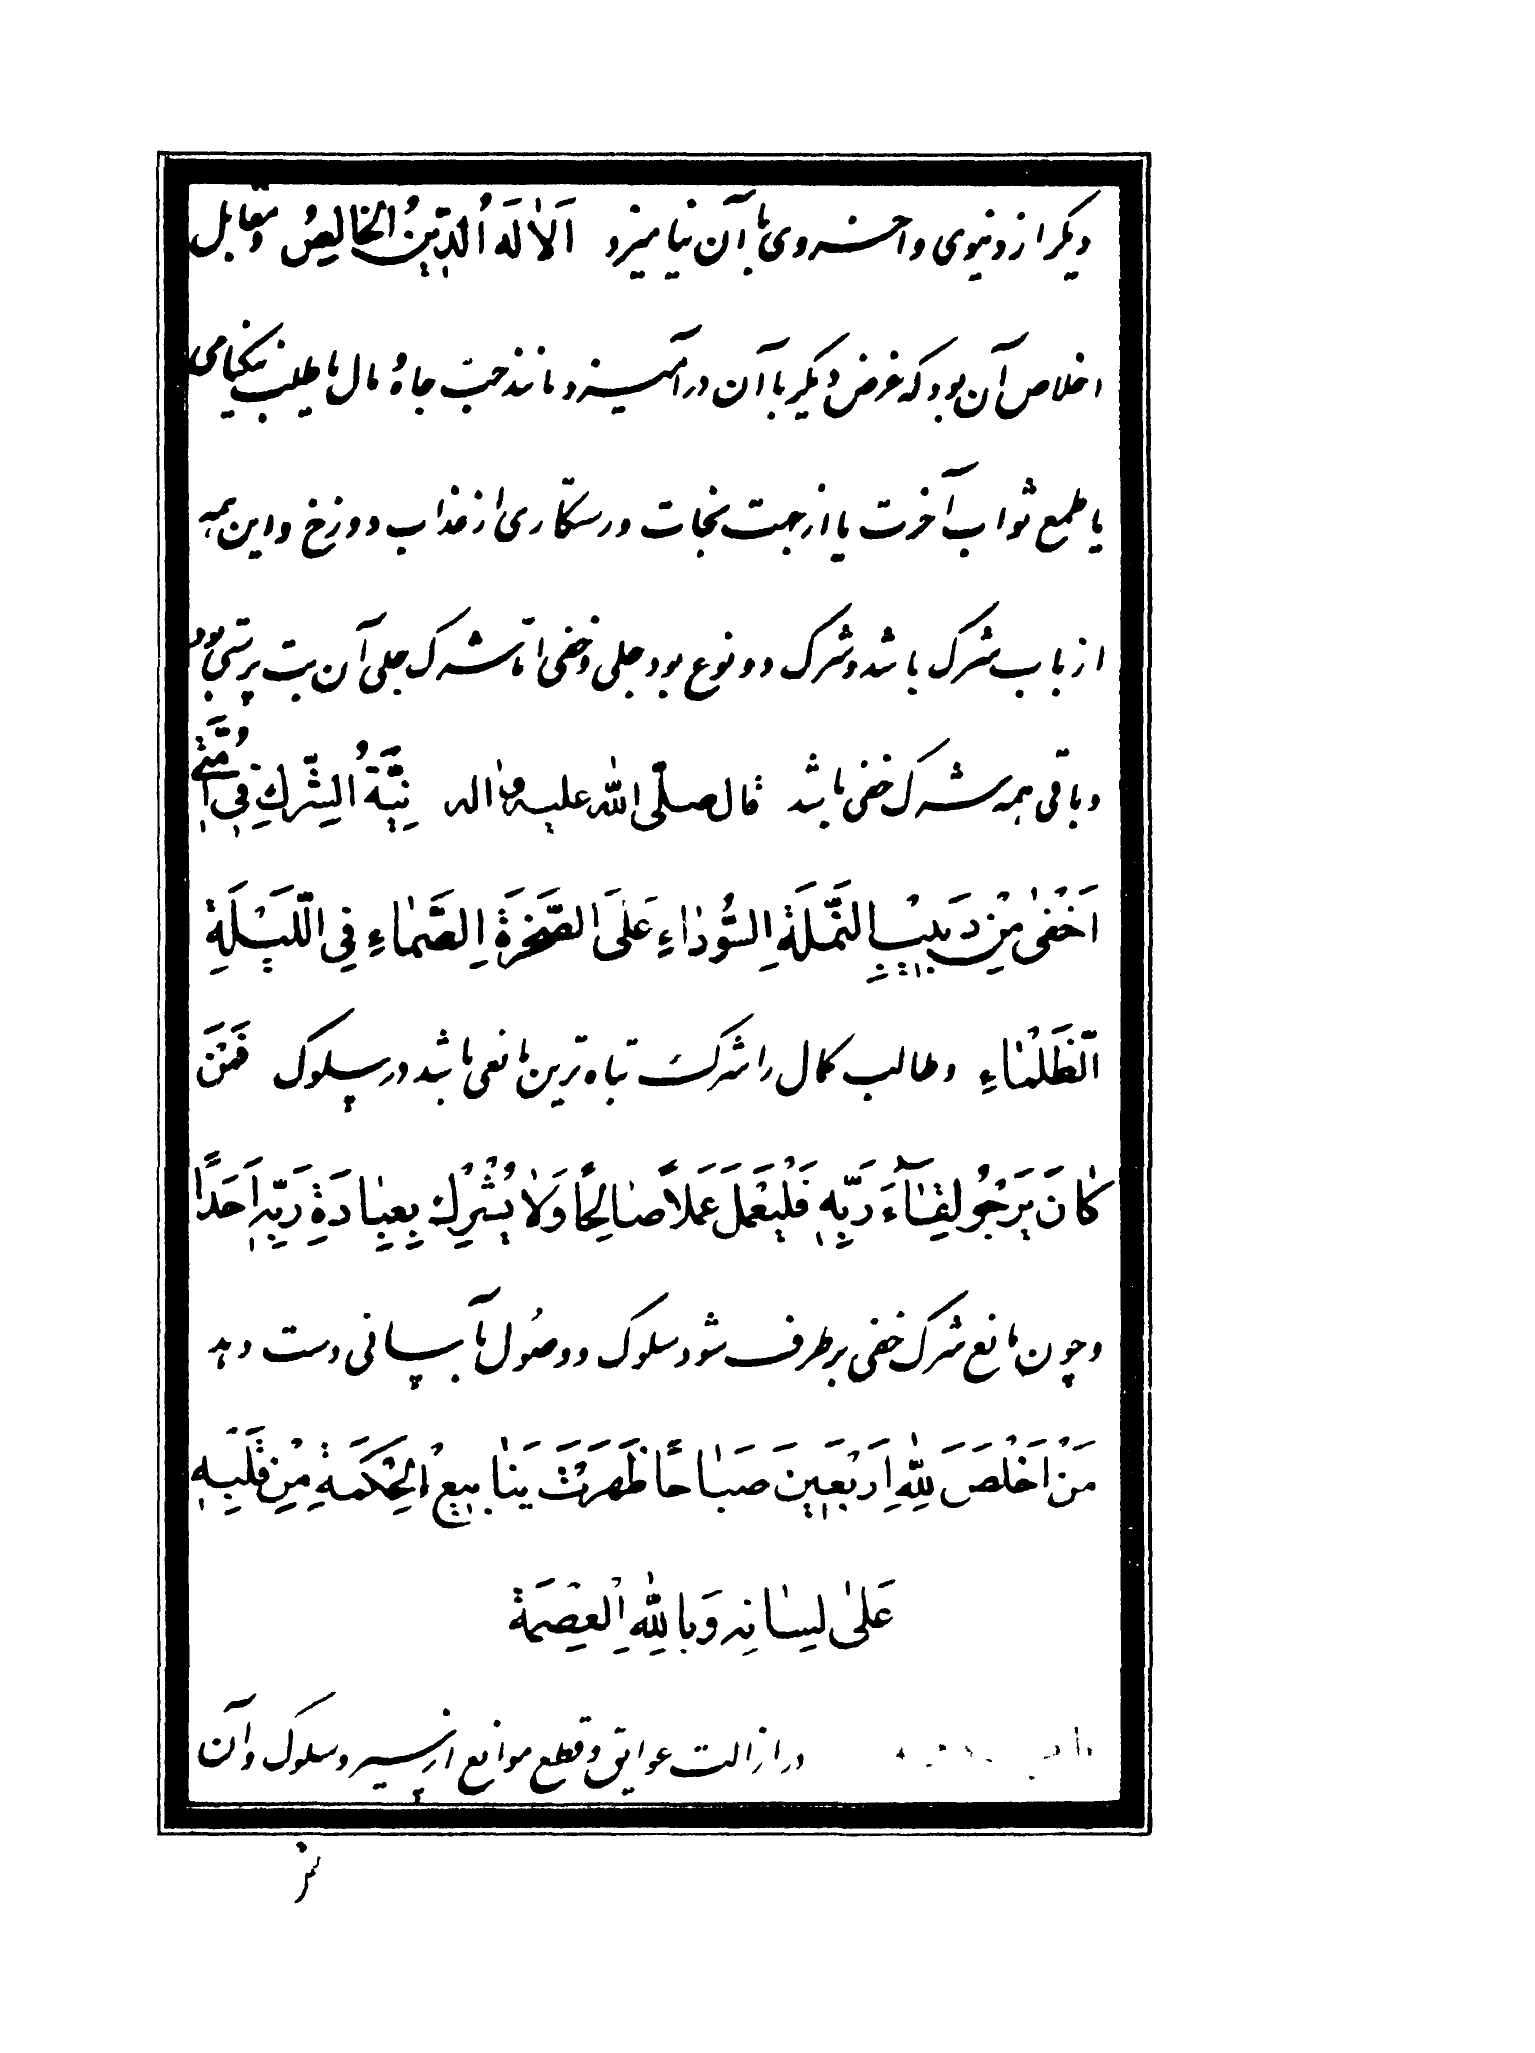 دیگر از دنیوی و اخروی با آن نیامیزد اَلاٰ لَهَ الُدّینُ الخالِصُ و مقابل
اخلاص آن بود که غرض دیگر با آن درآمیزد مانند حبّ جاه و مال یا طلب نیکنامی
یا طمع ثواب آخرت یا از جهت نجات و رستگاری از عذاب دوزخ و این همه
از باب شرک باشد و شرک دو نوع بود جلی و خفی امّا شرک جلی آن بت پرستی بود
و باقی همه شرک خفی باشد قال صلّی اللّٰه علیه و اله نِیَّةُ الشِّرْكِ فِي اُمَّتِي
اَخْفىٰ مِنْ دَبِيْبِ النَّمْلَةِ السُّوْدٰاءِ عَلَى الصَّخْرَةِ الصَّمّٰاءِ فِي اللَّيْلَةِ
الظَّلْمٰاءِ و طالب کمال را شرک تباه ترین مانعی باشد در سلوک فَمَنْ
كٰانَ يَرْجُو لِقٰاۤءَ رَبِّهٖ فَلْيَعْمَلْ عَمَلاً صٰالِحًا وَلاٰ يُشْرِكْ بِعِبٰادَةِ رَبِّهٖ اَحَدًا
و چون مانع شرک خفی برطرف شود سلوک و وصول بآسانی دست دهد
مَنْ اَخْلَصَ لِلّٰهِ اَرْبَعِيْنَ صَبٰاحًا ظَهَرَتْ يَنٰابِيعُ الْحِكْمَةِ مِنْ قَلْبِهٖ
عَلىٰ لِسٰانِهٖ وَبِاللّٰهِ الْعِصْمَة
در ازالت عوایق و قطع موانع از سیر و سلوک و آن